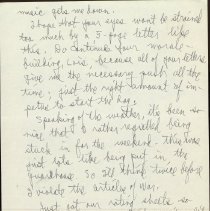 music gets me down.
I hope that your eyes won't be strained
too much by a 3-page letter like
this. Do continue your morale-
building, Lois, because all of your letters
give me the necessary push all the
time; just the right amount of im-
petus to start the day.
Speaking of the weather, it's been so
nice that I rather regretted being
stuck in for the weekend - this time
just like being put in the
guardhouse. So all think twice before
I violate the articles of war.
Just got our rating sheets so